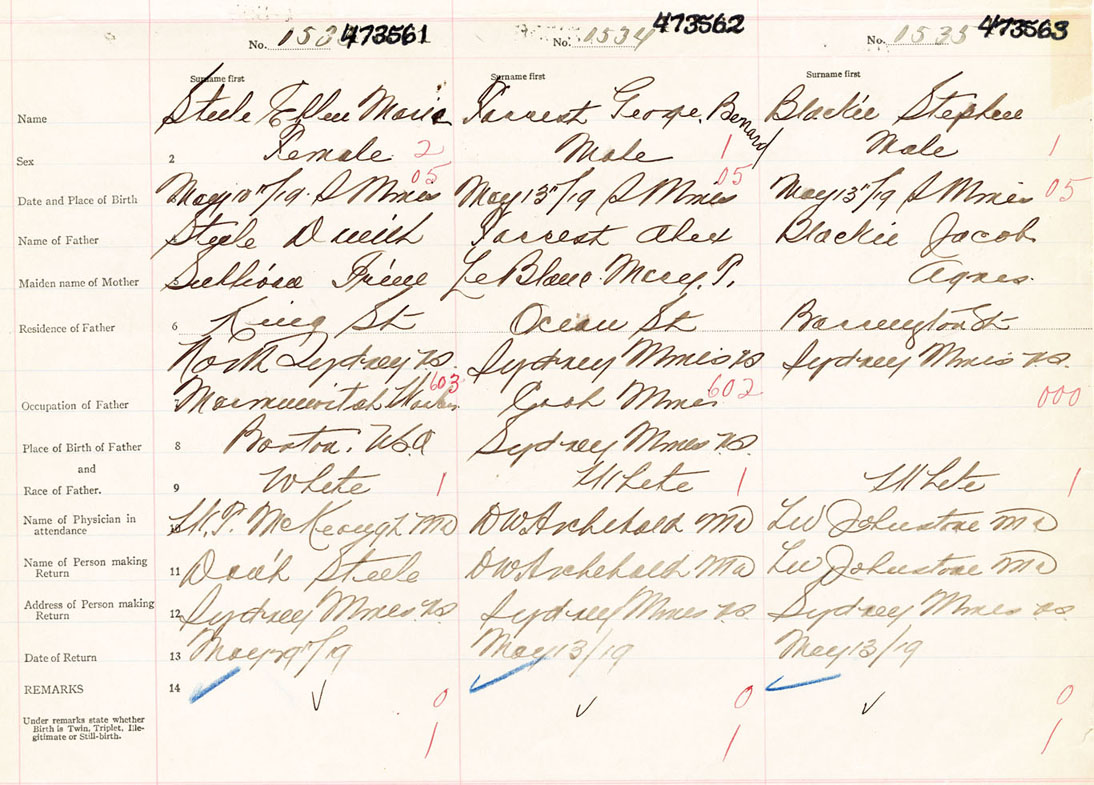 No. 153 473561 No. 1534 473562 No. 1535 473563
Surname first Surname first Surname first
Name Steele Ellen Marie Forrest George Benard Blackie Stephen
Sex 2 Female 2 Male 1 Male 1
05 05 05
Date and Place of Birth May 10"/19 S Mines May 13"/19 S Mines May 13"/19 S Mines
Name of Father Steele Forrest Alex Blackie Jacob
Maiden name of Mother 5 Irene LeBlanc Mary. P. Agnes
Residence of Father 6 King St Ocean St Barrington St
North Sydney ns. Sydney Mines ns Sydney Mines ns.
603 602 000
Occupation of Father 7 Mines
Place of Birth of Father 8 Boston. USA Sydney Mines ns.
and
Race of Father. 9 White 1 White 1 White 1
Name of Physician in 10 W. P. McKeough MD DW Archibald MD LW Johnstone MD
attendance
Name of Person making 11 Steele DW Archibald MD LW Johnstone MD
Return
Address of Person making 12 Sydney Mines ns Sydney Mines ns Sydney Mines ns
Return
Date of Return 13 May 29"/19 May 13/19 May 13/19
REMARKS 14 0 0 0
Under remarks state whether
Birth is Twin, Triplet, Ille-
gitimate or Still-birth.
1 1 1